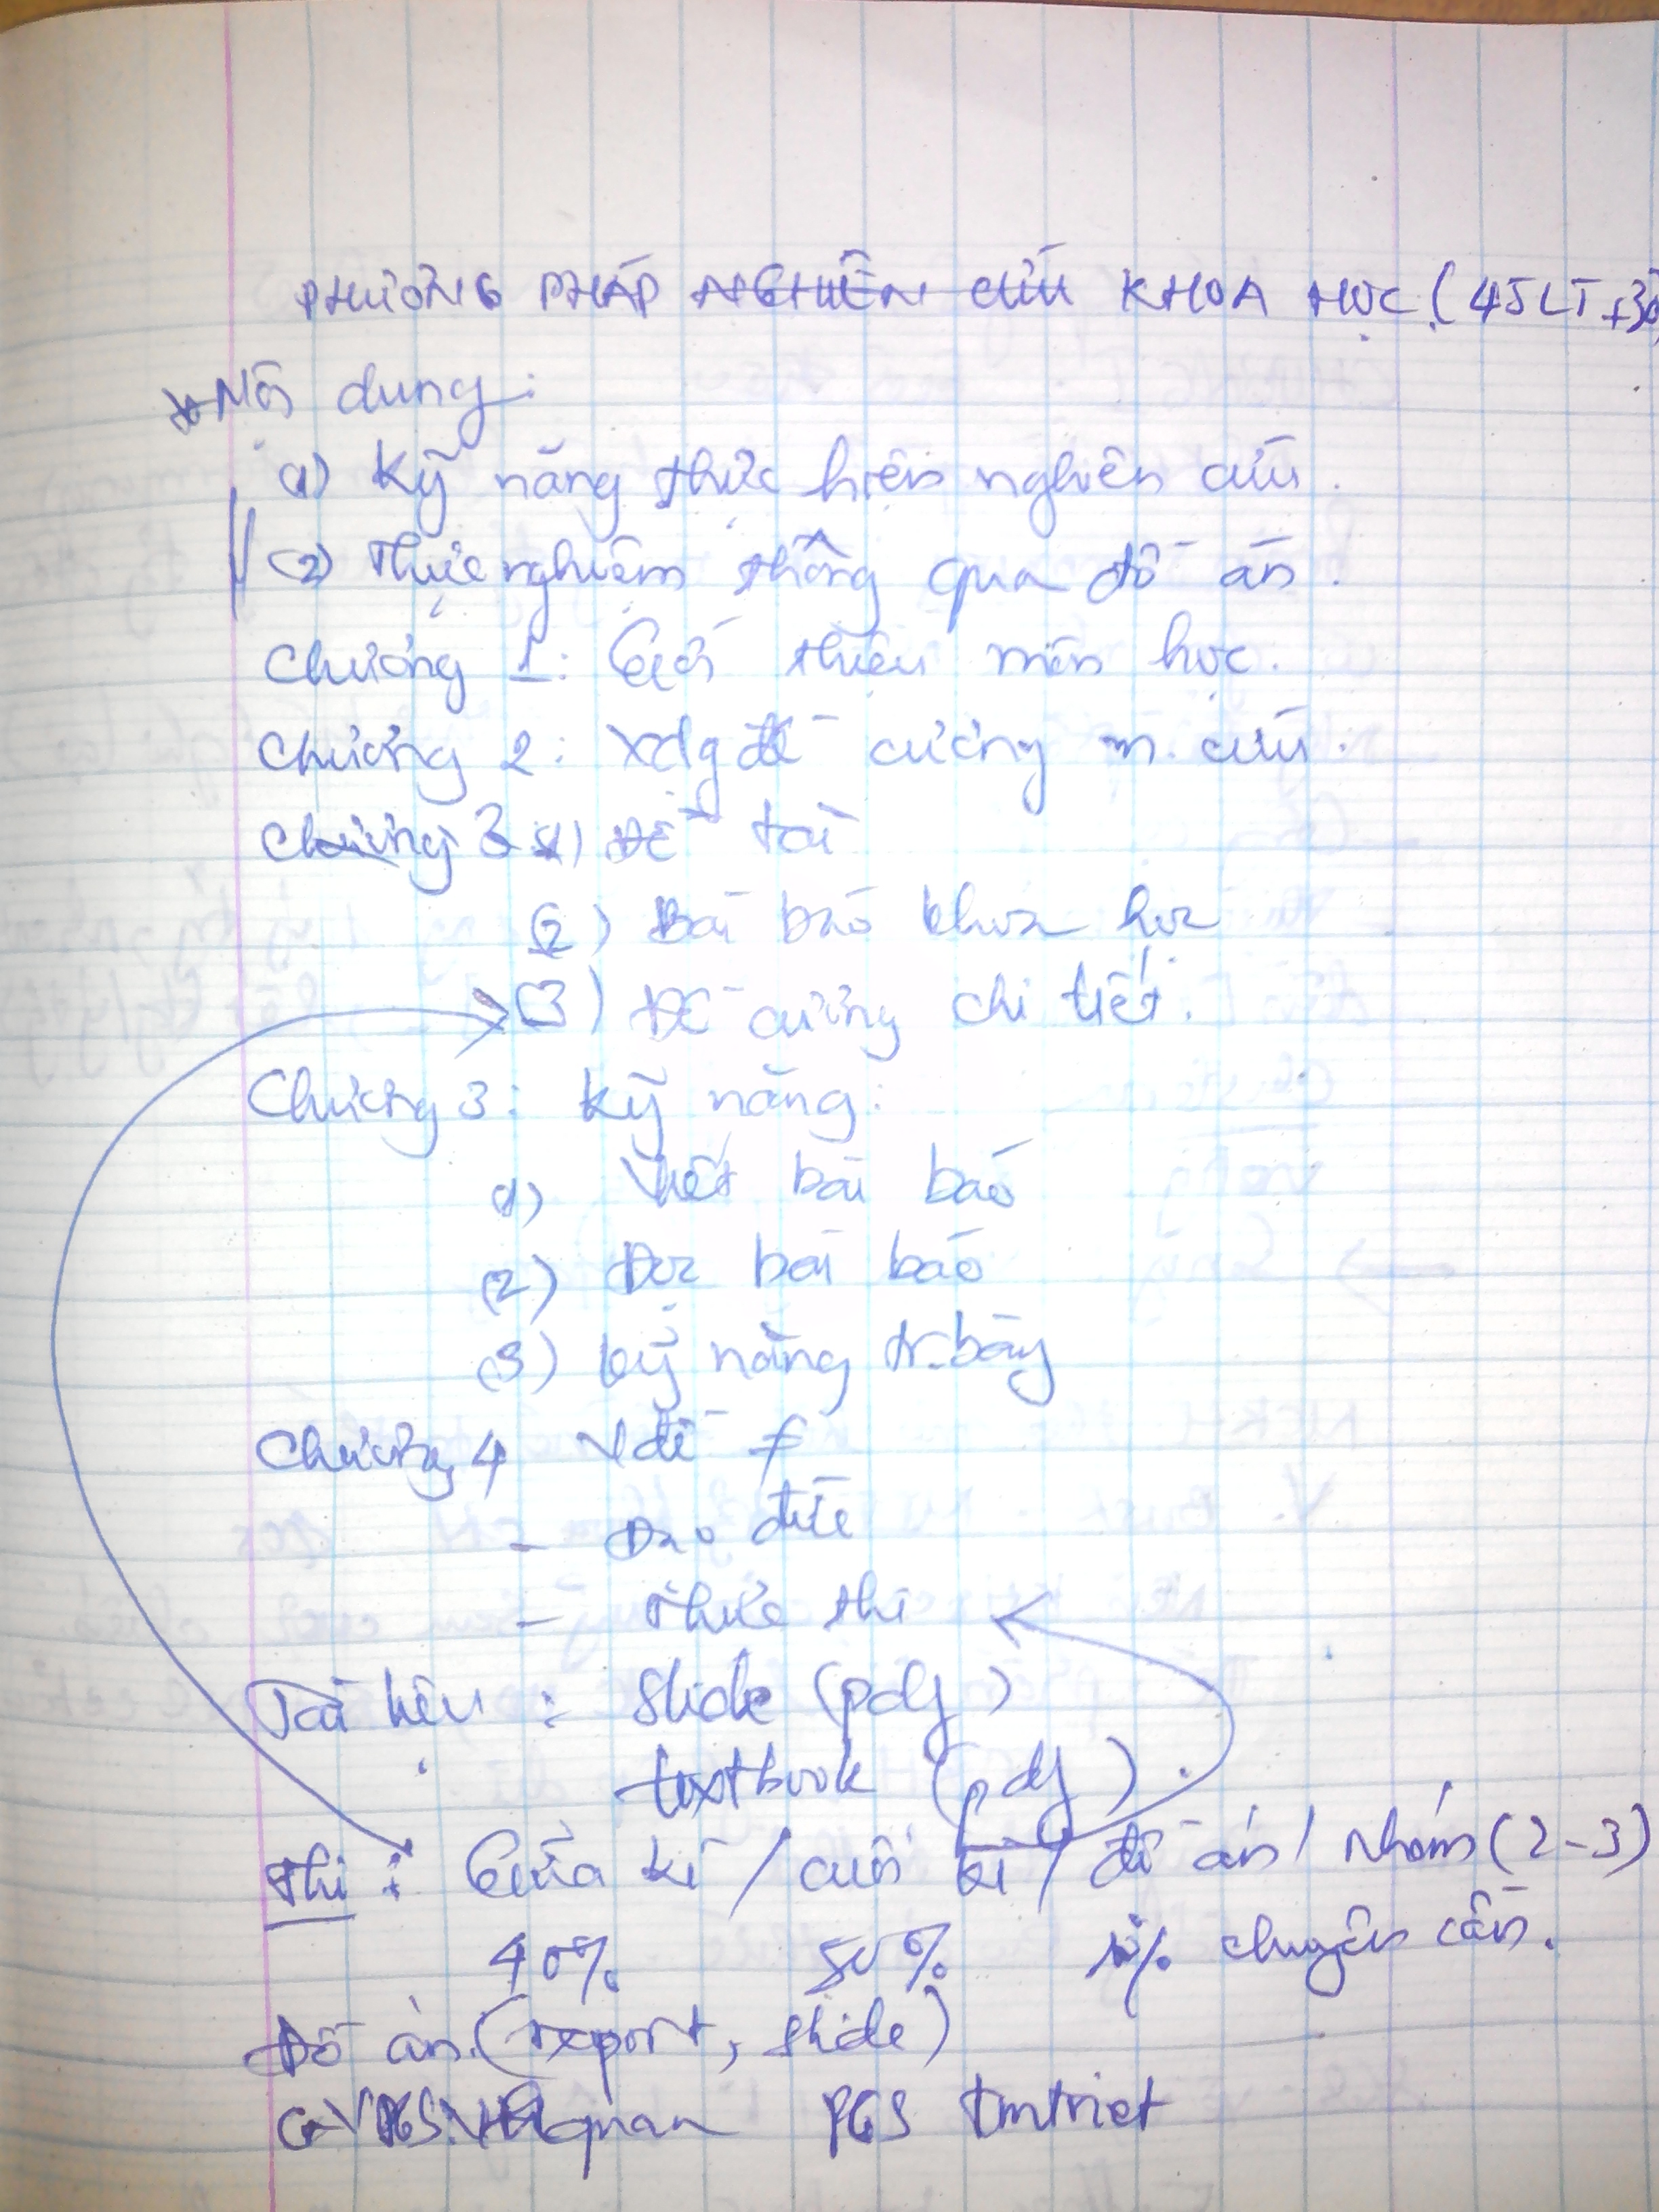 PHƯƠNG PHÁP NGHIÊN CỨU KHOA HỌC (45LT+30
* Nội dung:
(1) Kỹ năng thực hiện nghiên cứu.
(2) Thực nghiệm thông qua đồ án.
Chương 1: Giới thiệu môn học.
Chương 2: Xdg đề cương n.cứu.
Chương 3 (1) Đề tài
(2) Bài báo khoa học
(3) Đề cương chi tiết.
Chương 3: Kỹ năng:
(1) Viết bài báo
(2) Đọc bài báo
(3) Kỹ năng tr.bày
Chương 4 Vđề ≠
- Đạo đức
- Thực thi
Tài liệu : Slide (pdf)
textbook (pdf).
Thi : Giữa kì / cuối kì / đồ án / Nhóm (2-3)
40% 50% 10% chuyên cần.
Đồ án (report, slide)
GV PGS. PGS tmtriet